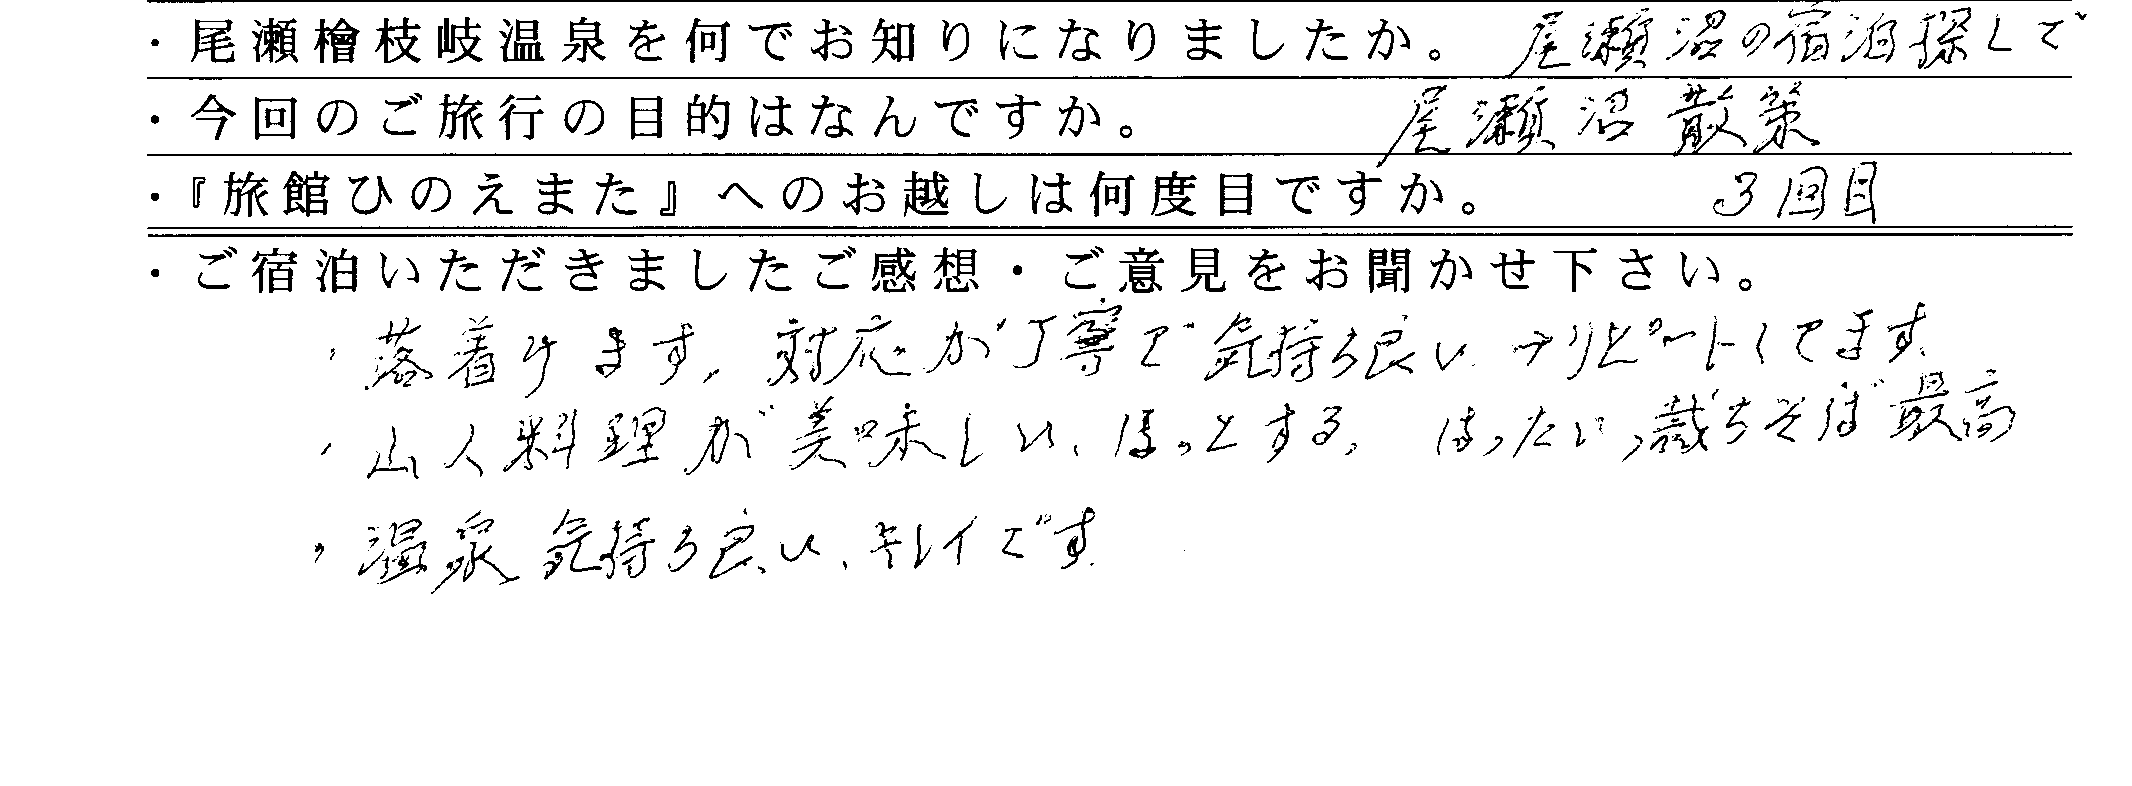 ・尾瀬檜枝岐温泉を何でお知りになりましたか。 尾瀬沼の宿泊探しで
・今回のご旅行の目的はなんですか。 尾瀬沼散策
・『旅館ひのえまた』へのお越しは何度目ですか。 3回目
・ご宿泊いただきましたご感想・ご意見をお聞かせ下さい。
・落着けます、対応が丁寧で気持ち良い→リピートしてます。
・山人料理が美味しい、ほっとする、はったい、裁ちそば最高
・温泉気持ち良い、キレイです。